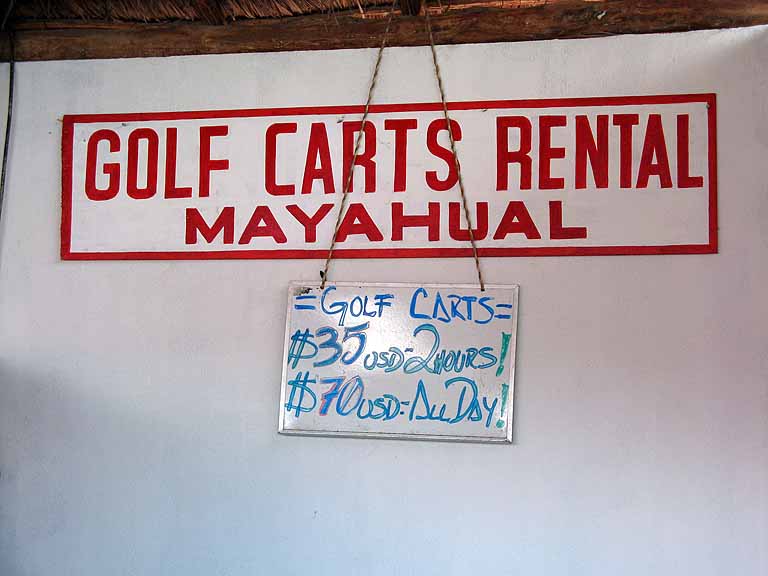 GOLF CARTS RENTAL
MAYAHUAL
=GOLF CARTS=
$35 USD-2HOURS!
$70 USD=ALL DAY!